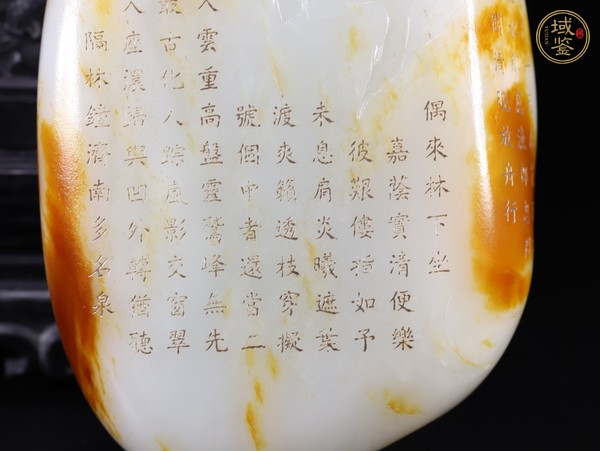 域鉴
偶來林下坐
嘉蔭實清便樂
彼艱僂指如予
未息肩炎曦遮葉
渡爽籟透枝穿擬
號個中者還當二
人雲重高盤靈鷲峰無先
古化人蹤嵐影交窗翠
人座濃歸輿凹外轉猶聽
隔林鐘濟南多名泉
放舟行